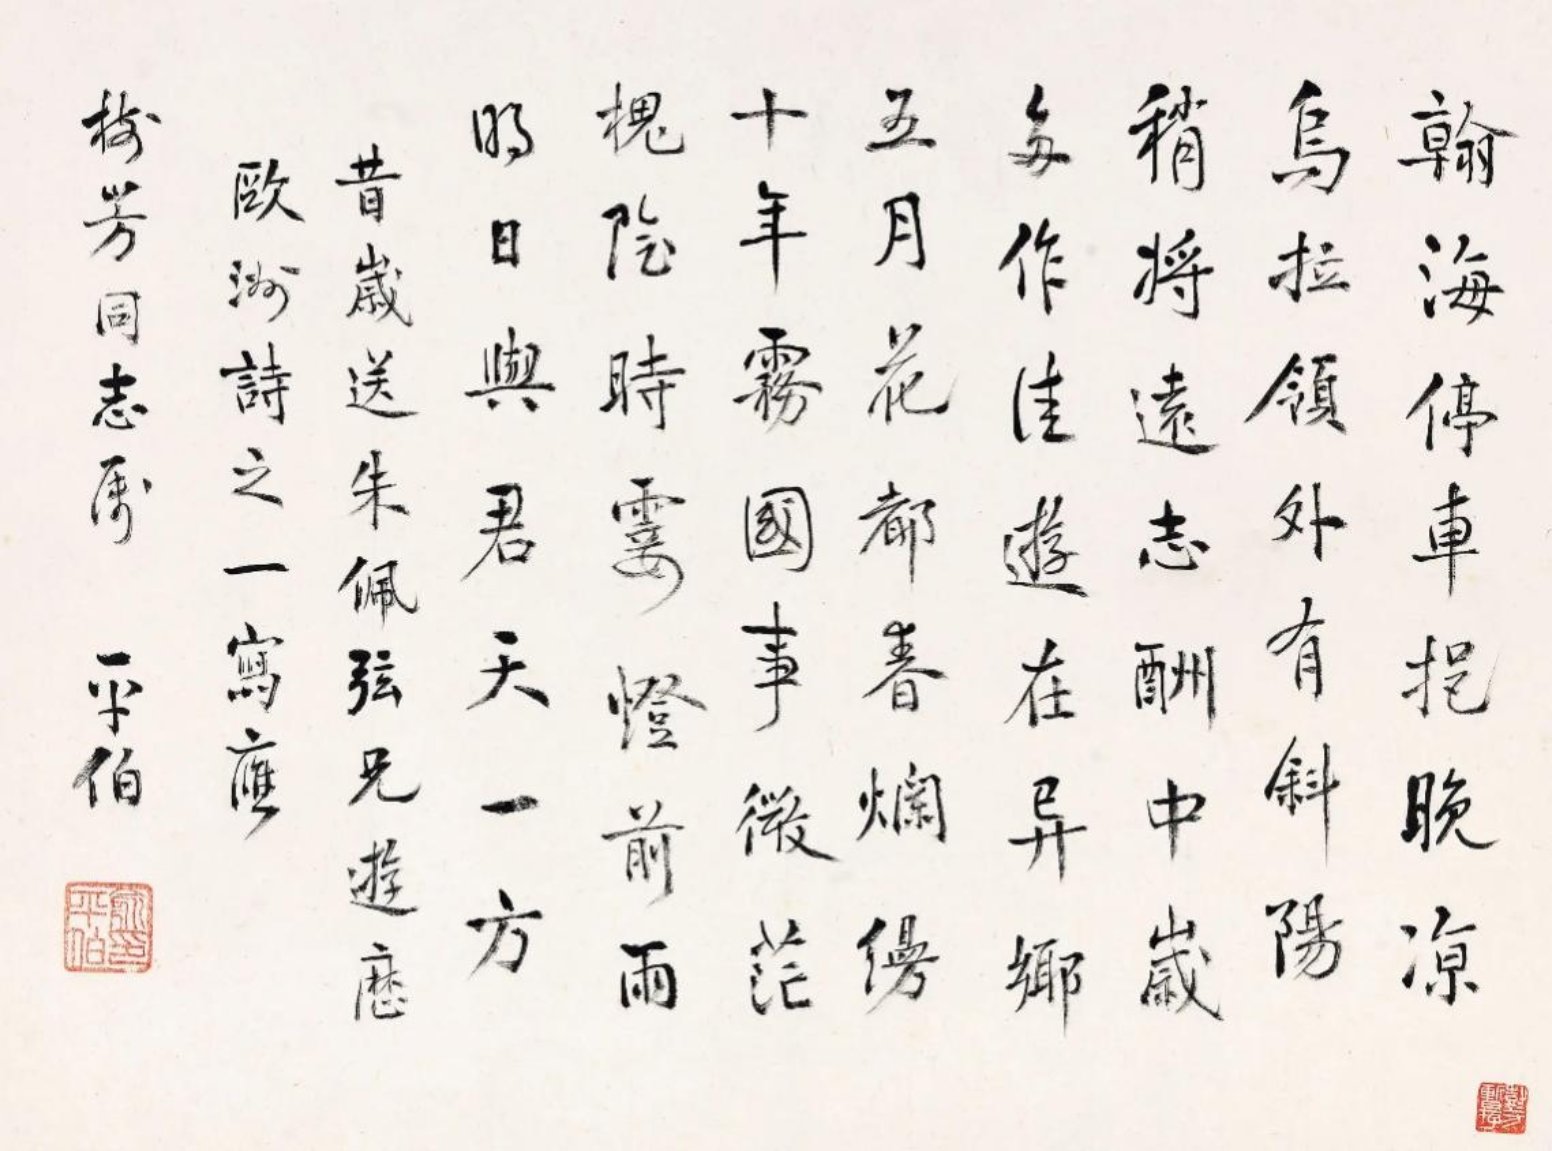 翰海停車挹晚涼
烏拉領外有斜陽
稍將遠志酬中歲
多作佳遊在异鄉
五月花都春爛縵
十年霧國事微茫
槐陰時霎燈前雨
明日與君天一方
昔歲送朱佩弦兄遊歷
歐洲詩之一寫應
樹芳同志属 平伯
俞平伯